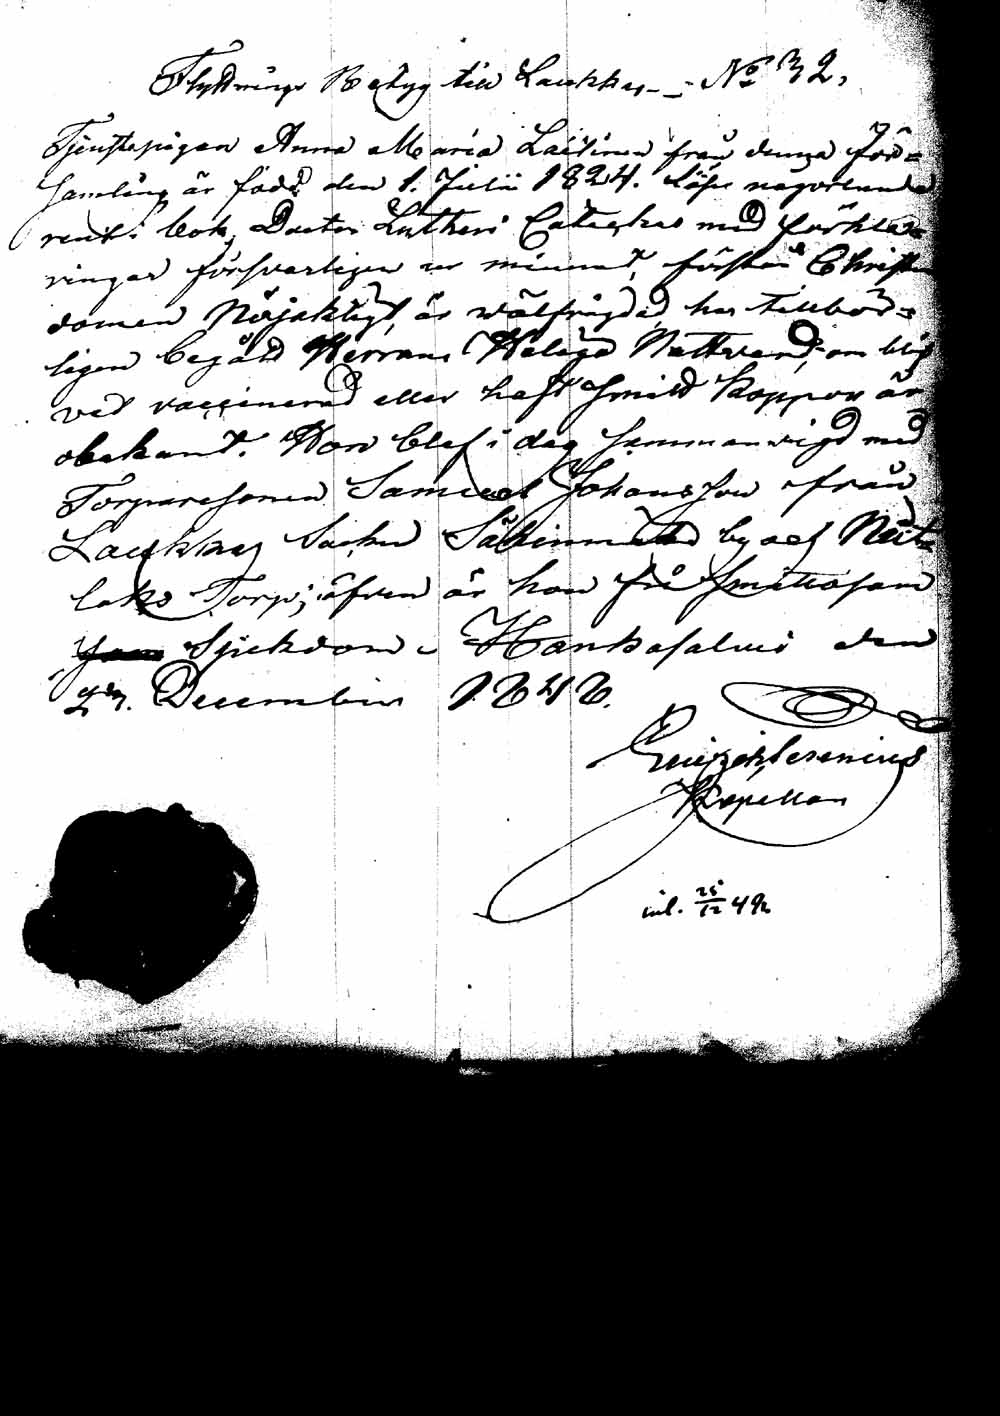 Flyttnings Betyg till Laukkas - - No 32.
Tjenstepigan Anna Maria Laitinen från denna för=
samling är född den 1. Julii 1824. Läser någorlunda
rent i bok, Doctor Lutheri Cateches med förkla=
ringar försvarligen ur minnet, förstår Christen
domen Nöjaktigt, är wälfrägdad, har tillbör=
ligen begått Herrans Heliga Nattvard, om blif
vet vaccinerad eller haft Smitt Koppor är
obekant. Hon blef i dag sammanvigd med
Torparesonen Samuel Johansson från
Laukkas Socken by och
Torp; äfven är hon fri smittosam
Sjukdom. Hankasalmi den
27. December 1848.
Capellan
inl. 25/12 48